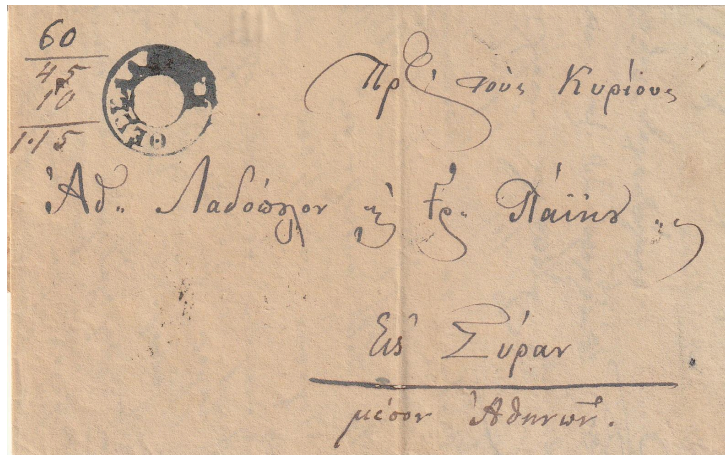 60
45
10
1.15
Πρὸς τοὺς Κυρίους
Ἀθ. Λαδόπουλον κ Γρ. Πάϊκον
Εἰς Σύραν
μέσον Ἀθηνῶν.